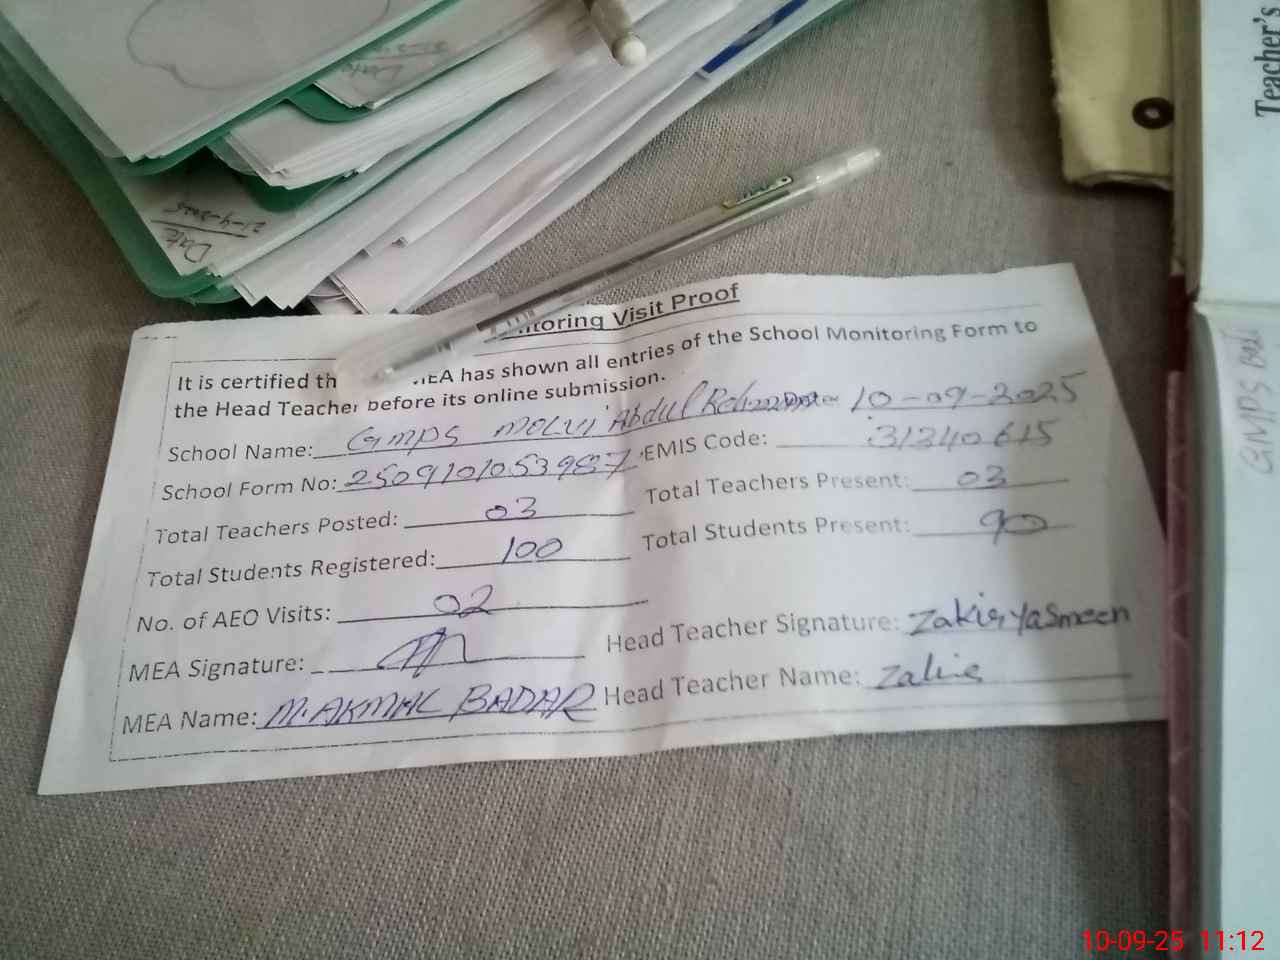 Teacher's
Date
Date
21-4-2025
itoring Visit Proof
It is certified th MEA has shown all entries of the School Monitoring Form to
the Head Teacher before its online submission.
School Name: GMPS MOLVI Abdul Rehman Date 10-09-2025
School Form No: 250910105 3987 EMIS Code: 31340615
Total Teachers Posted: 03 Total Teachers Present: 03
Total Students Registered: 100 Total Students Present: 90
No. of AEO Visits: 02
MEA Signature: Head Teacher Signature: Zakir Yasmeen
MEA Name: M. AKMAL BADAR Head Teacher Name: Zakir
GMPS
10-09-25 11:12